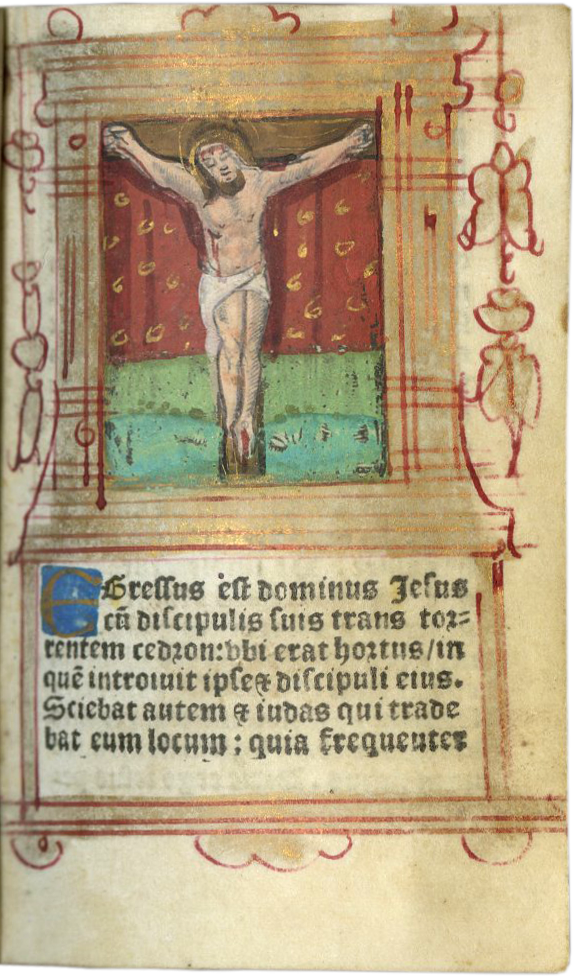 EGressus est dominus Jesus
cū discipulis suis trans tor=
rentem cedron: vbi erat hortus/in
quē introiuit ipse ⁊ discipuli eius.
Sciebat autem ⁊ iudas qui trade
bat eum locum: quia frequenter